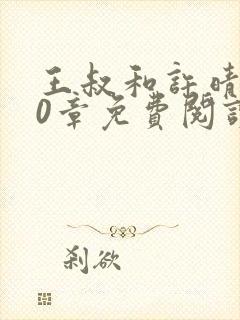 王叔和許晴
0章免費閱讀
剎欲